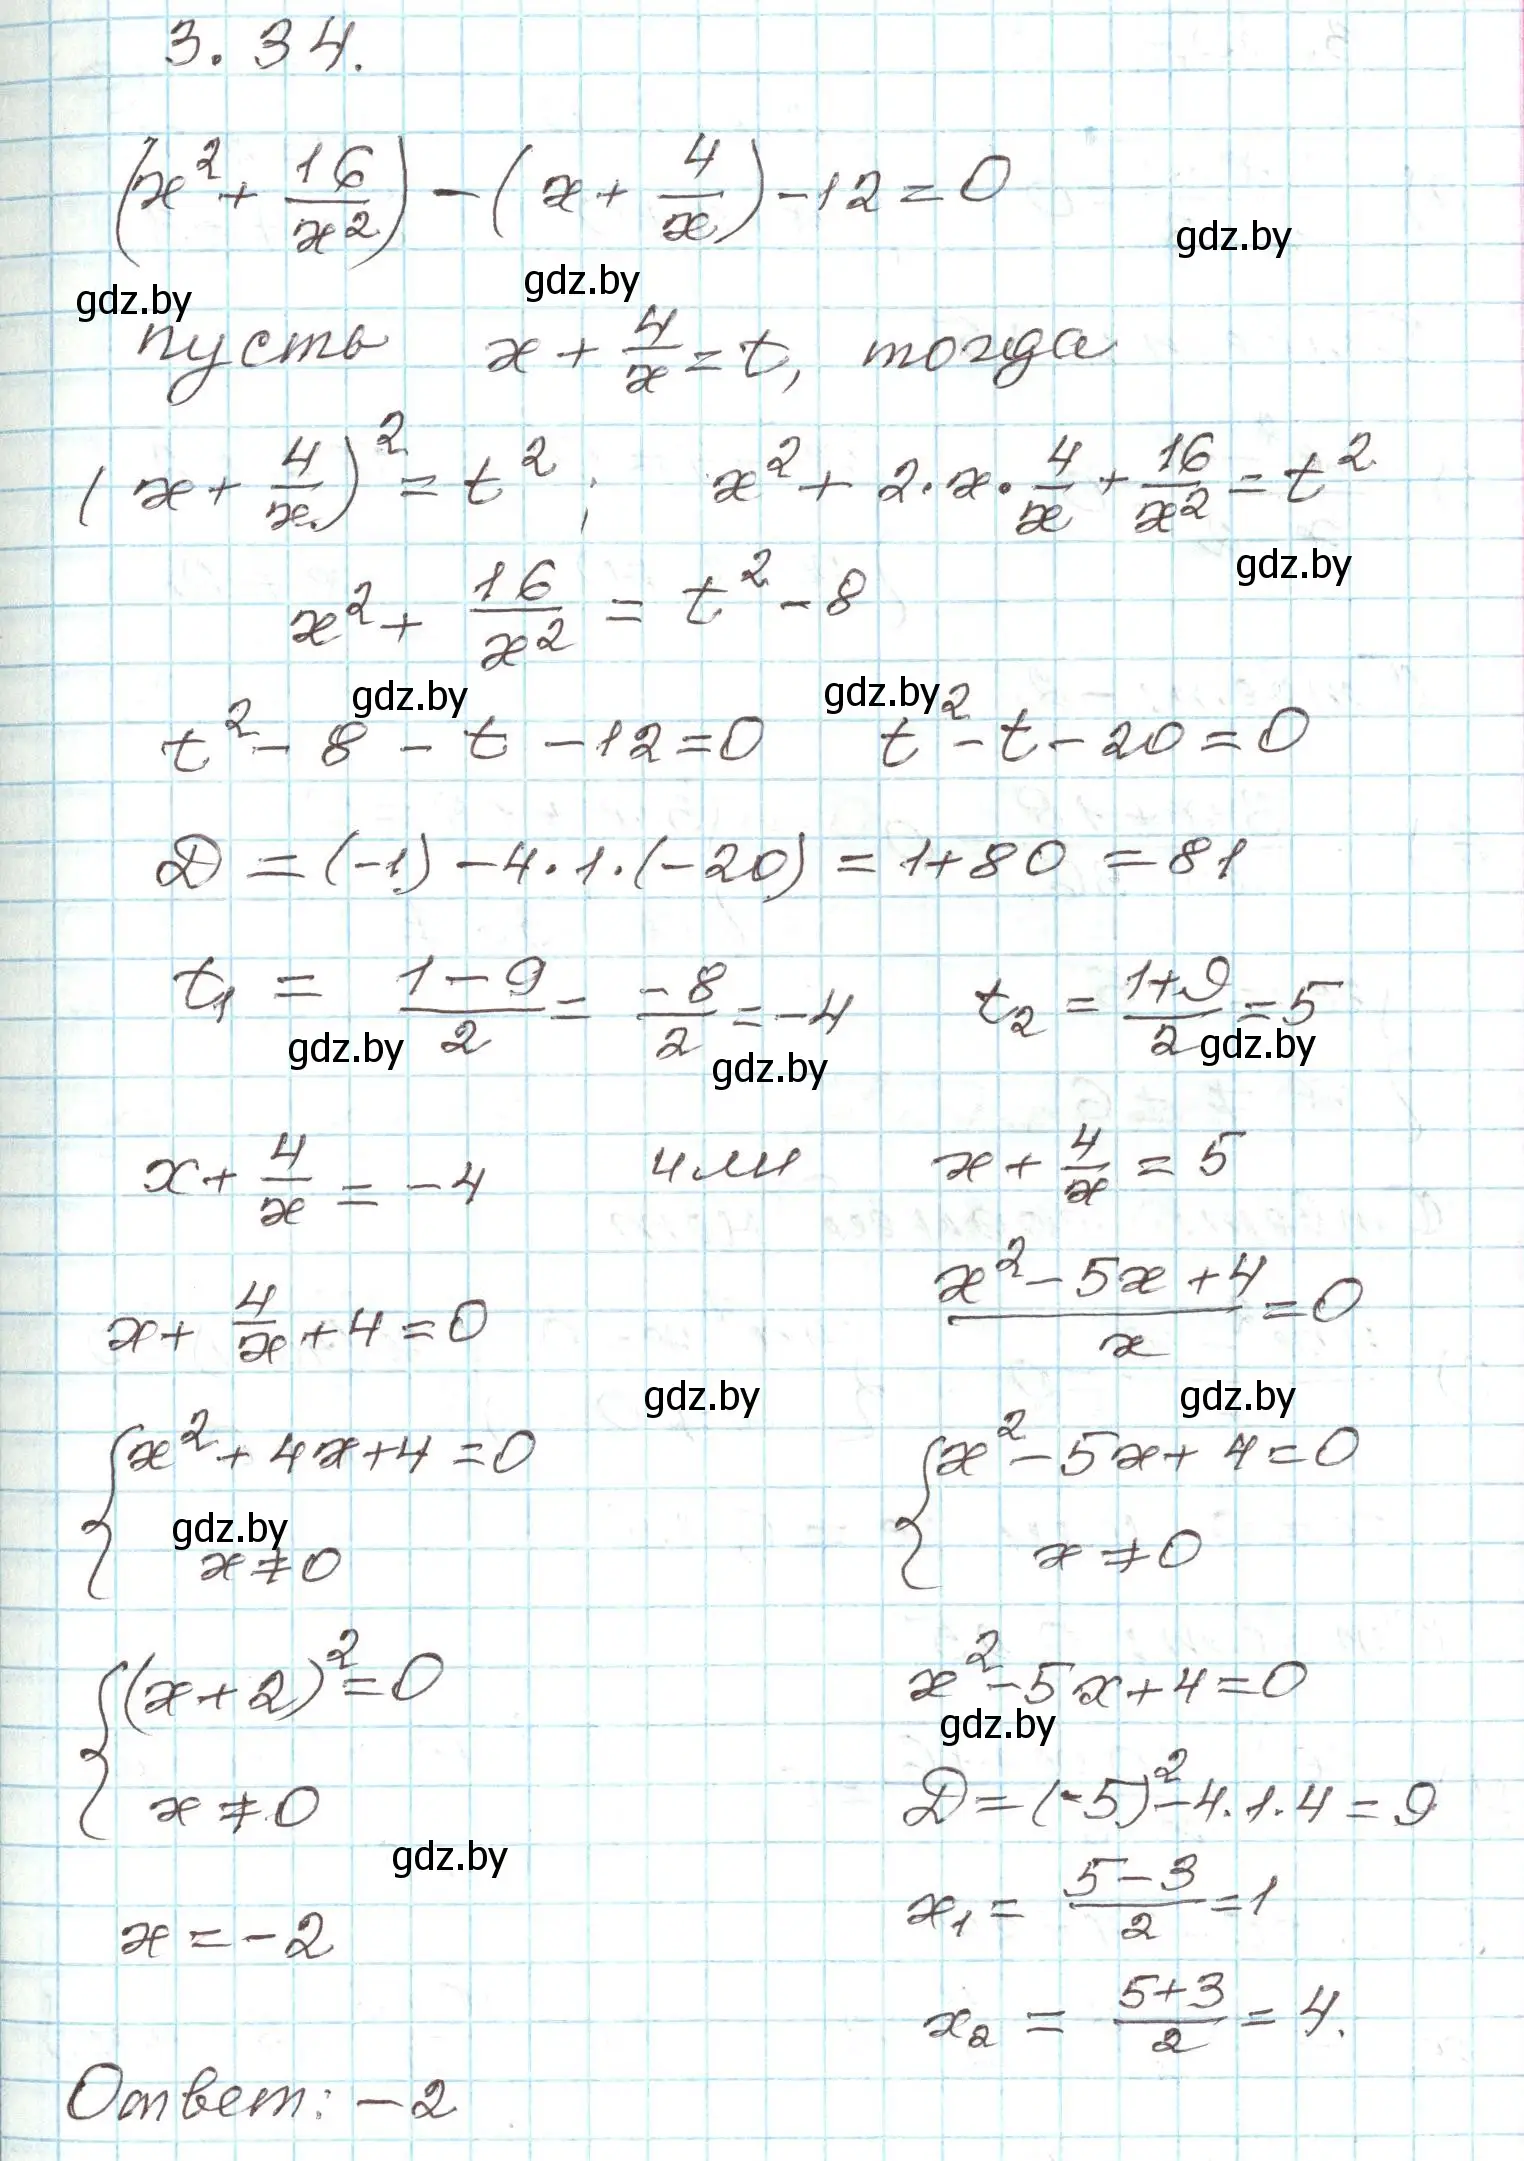 3.34.
(x² + 16/x²) - (x + 4/x) - 12 = 0
gdz.by gdz.by gdz.by
пусть x + 4/x = t, тогда
(x + 4/x)² = t² ; x² + 2·x·4/x + 16/x² = t²
gdz.by
x² + 16/x² = t² - 8
gdz.by gdz.by
t² - 8 - t - 12 = 0 t² - t - 20 = 0
D = (-1) - 4·1·(-20) = 1 + 80 = 81
t₁ = (1 - 9)/2 = -8/2 = -4 t₂ = (1+9)/2 = 5
gdz.by gdz.by gdz.by
x + 4/x = -4 или x + 4/x = 5
x + 4/x + 4 = 0 (x² - 5x + 4)/x = 0
gdz.by gdz.by
{ x² + 4x + 4 = 0 { x² - 5x + 4 = 0
gdz.by
x ≠ 0 x ≠ 0
{ (x + 2)² = 0 x² - 5x + 4 = 0
gdz.by
x ≠ 0 D = (-5)² - 4·1·4 = 9
gdz.by
x = -2 x₁ = (5 - 3)/2 = 1
x₂ = (5+3)/2 = 4.
Ответ: -2